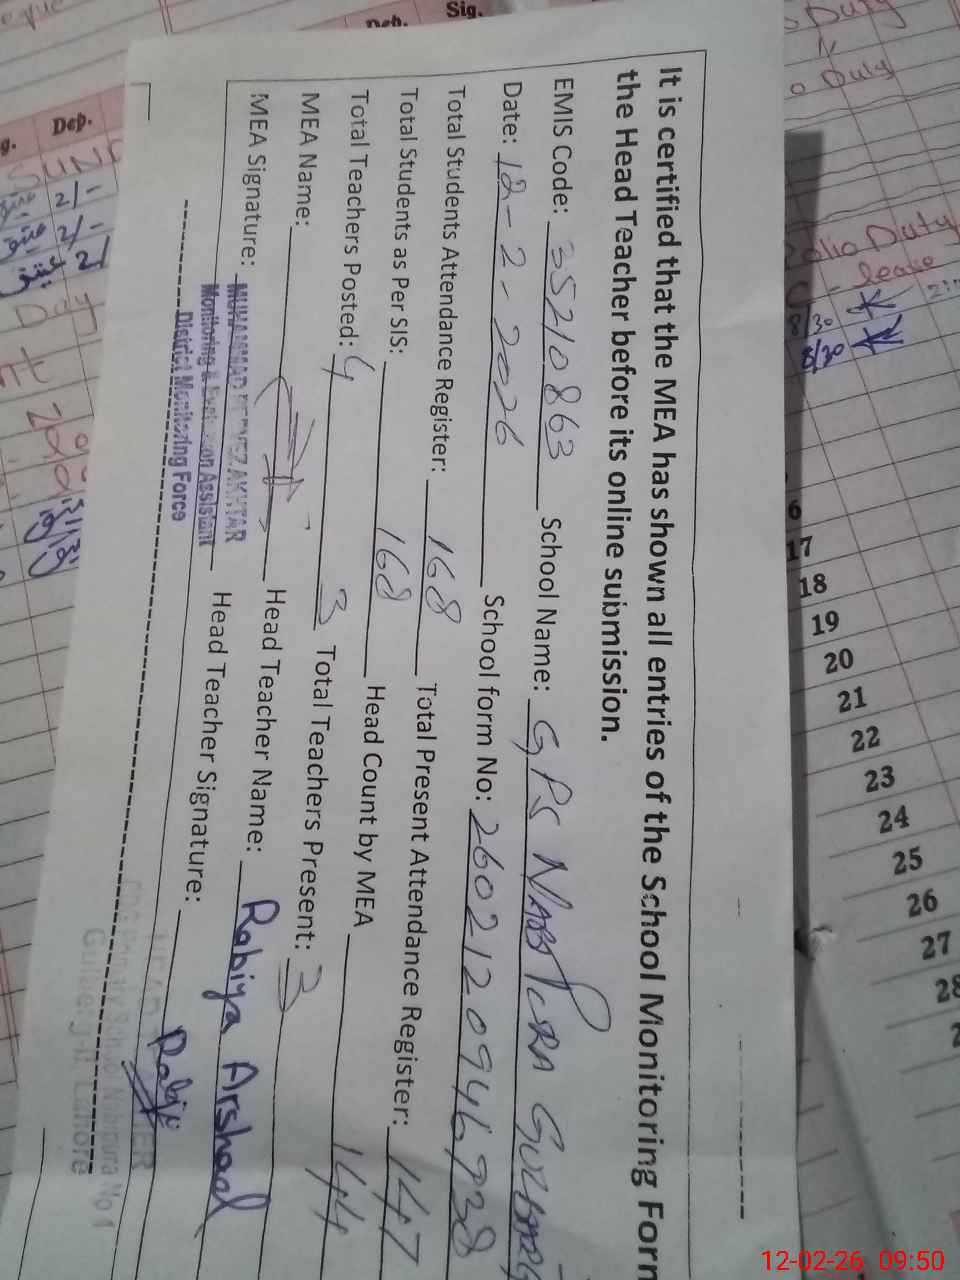 It is certified that the MEA has shown all entries of the School Monitoring Form
the Head Teacher before its online submission.
EMIS Code: 35210863 School Name: GPS NABI PURA GULBARG
Date: 12-2-2026 School form No:
Total Students Attendance Register: 168 Total Present Attendance Register: 147
Total Students as Per SIS: 168 Head Count by MEA 144
Total Teachers Posted: 4 3 Total Teachers Present: 3
MEA Name: Head Teacher Name: Rabiya Arshad
MEA Signature: Head Teacher Signature: Rabiya
MUHAMMAD PERVEZ AKHTAR
Monitoring & Evaluation Assistant
District Monitoring Force
CDG Primary School Nabipura No 1
Gulberg-II, Lahore
Sig.
Dep.
Dep.
Day
Duty
Duty
Polio Duty
leave
8/30
8/30
2/1
2/1
2/
6
17
18
19
20
21
22
23
24
25
26
27
28
12-02-26 09:50